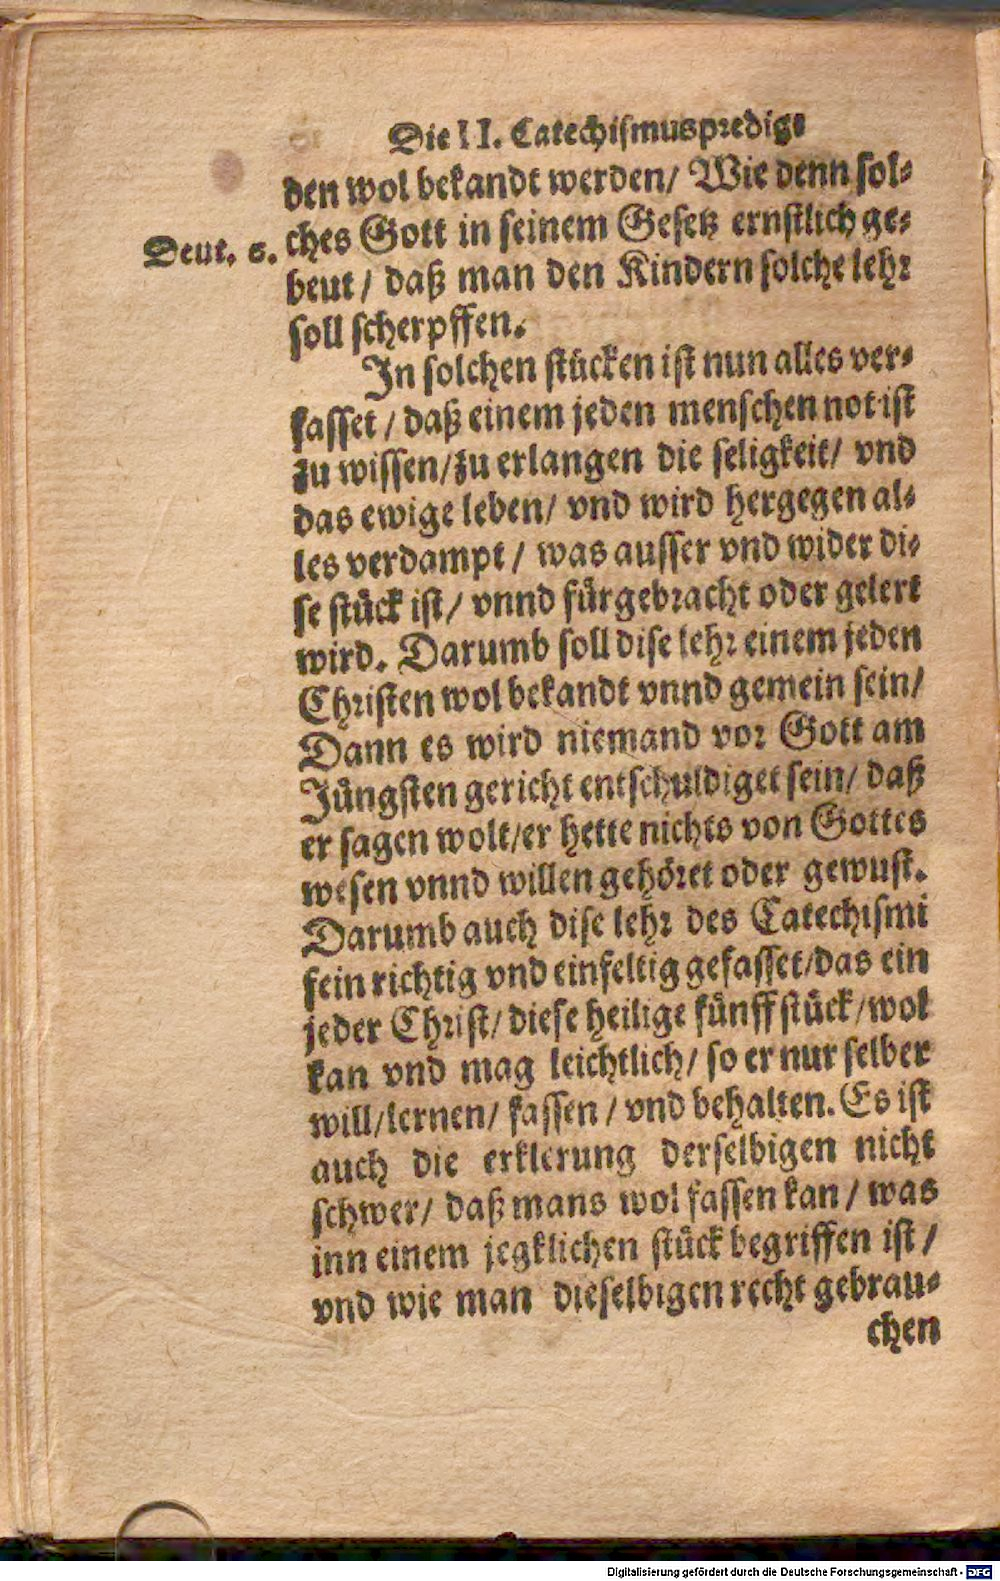 Die II. Catechismuspredig⸗
den wol bekandt werden/ Wie denn sol⸗
Deut. 6. ches Gott in seinem Gesetz ernstlich ge⸗
beut/ daß man den Kindern solche lehr
soll scherpffen.
In solchen stücken ist nun alles ver⸗
fasset/ daß einem jeden menschen not ist
zu wissen/zu erlangen die seligkeit/ vnd
das ewige leben/ vnd wird hergegen al⸗
les verdampt/ was ausser vnd wider di⸗
se stück ist/ vnnd fürgebracht oder gelert
wird. Darumb soll dise lehr einem jeden
Christen wol bekandt vnnd gemein sein/
Dann es wird niemand vor Gott am
Jüngsten gericht entschuldiget sein/ daß
er sagen wolt/er hette nichts von Gottes
wesen vnnd willen gehöret oder gewust.
Darumb auch dise lehr des Catechismi
fein richtig vnd einfeltig gefasset/das ein
jeder Christ/ diese heilige fünff stück/wol
kan vnd mag leichtlich/ so er nur selber
will/lernen/ fassen/ vnd behalten. Es ist
auch die erklerung derselbigen nicht
schwer/ daß mans wol fassen kan/ was
inn einem jegklichen stück begriffen ist/
vnd wie man dieselbigen recht gebrau⸗
chen
Digitalisierung gefördert durch die Deutsche Forschungsgemeinschaft - DFG